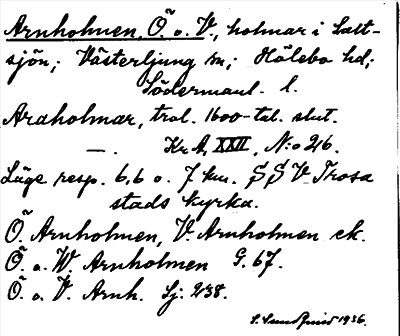 Arnholmen, Ö. o. V., holmar i Salt-
sjön; Västerljung sn; Hölebo hd;
Södermanl. l.
Aradholmar, trol. 1600-tal. slut.
—. Kr. A. XXII, N:o 26.
Läge resp. 6,6 o. 7 km. SSV Trosa
stads kyrka.
Ö. Arnholmen, V. Arnholmen ek.
Ö. o. W. Arnholmen G. 67.
Ö. o. V. Arnh. Sj: 238.
S. Sundquist 1936.